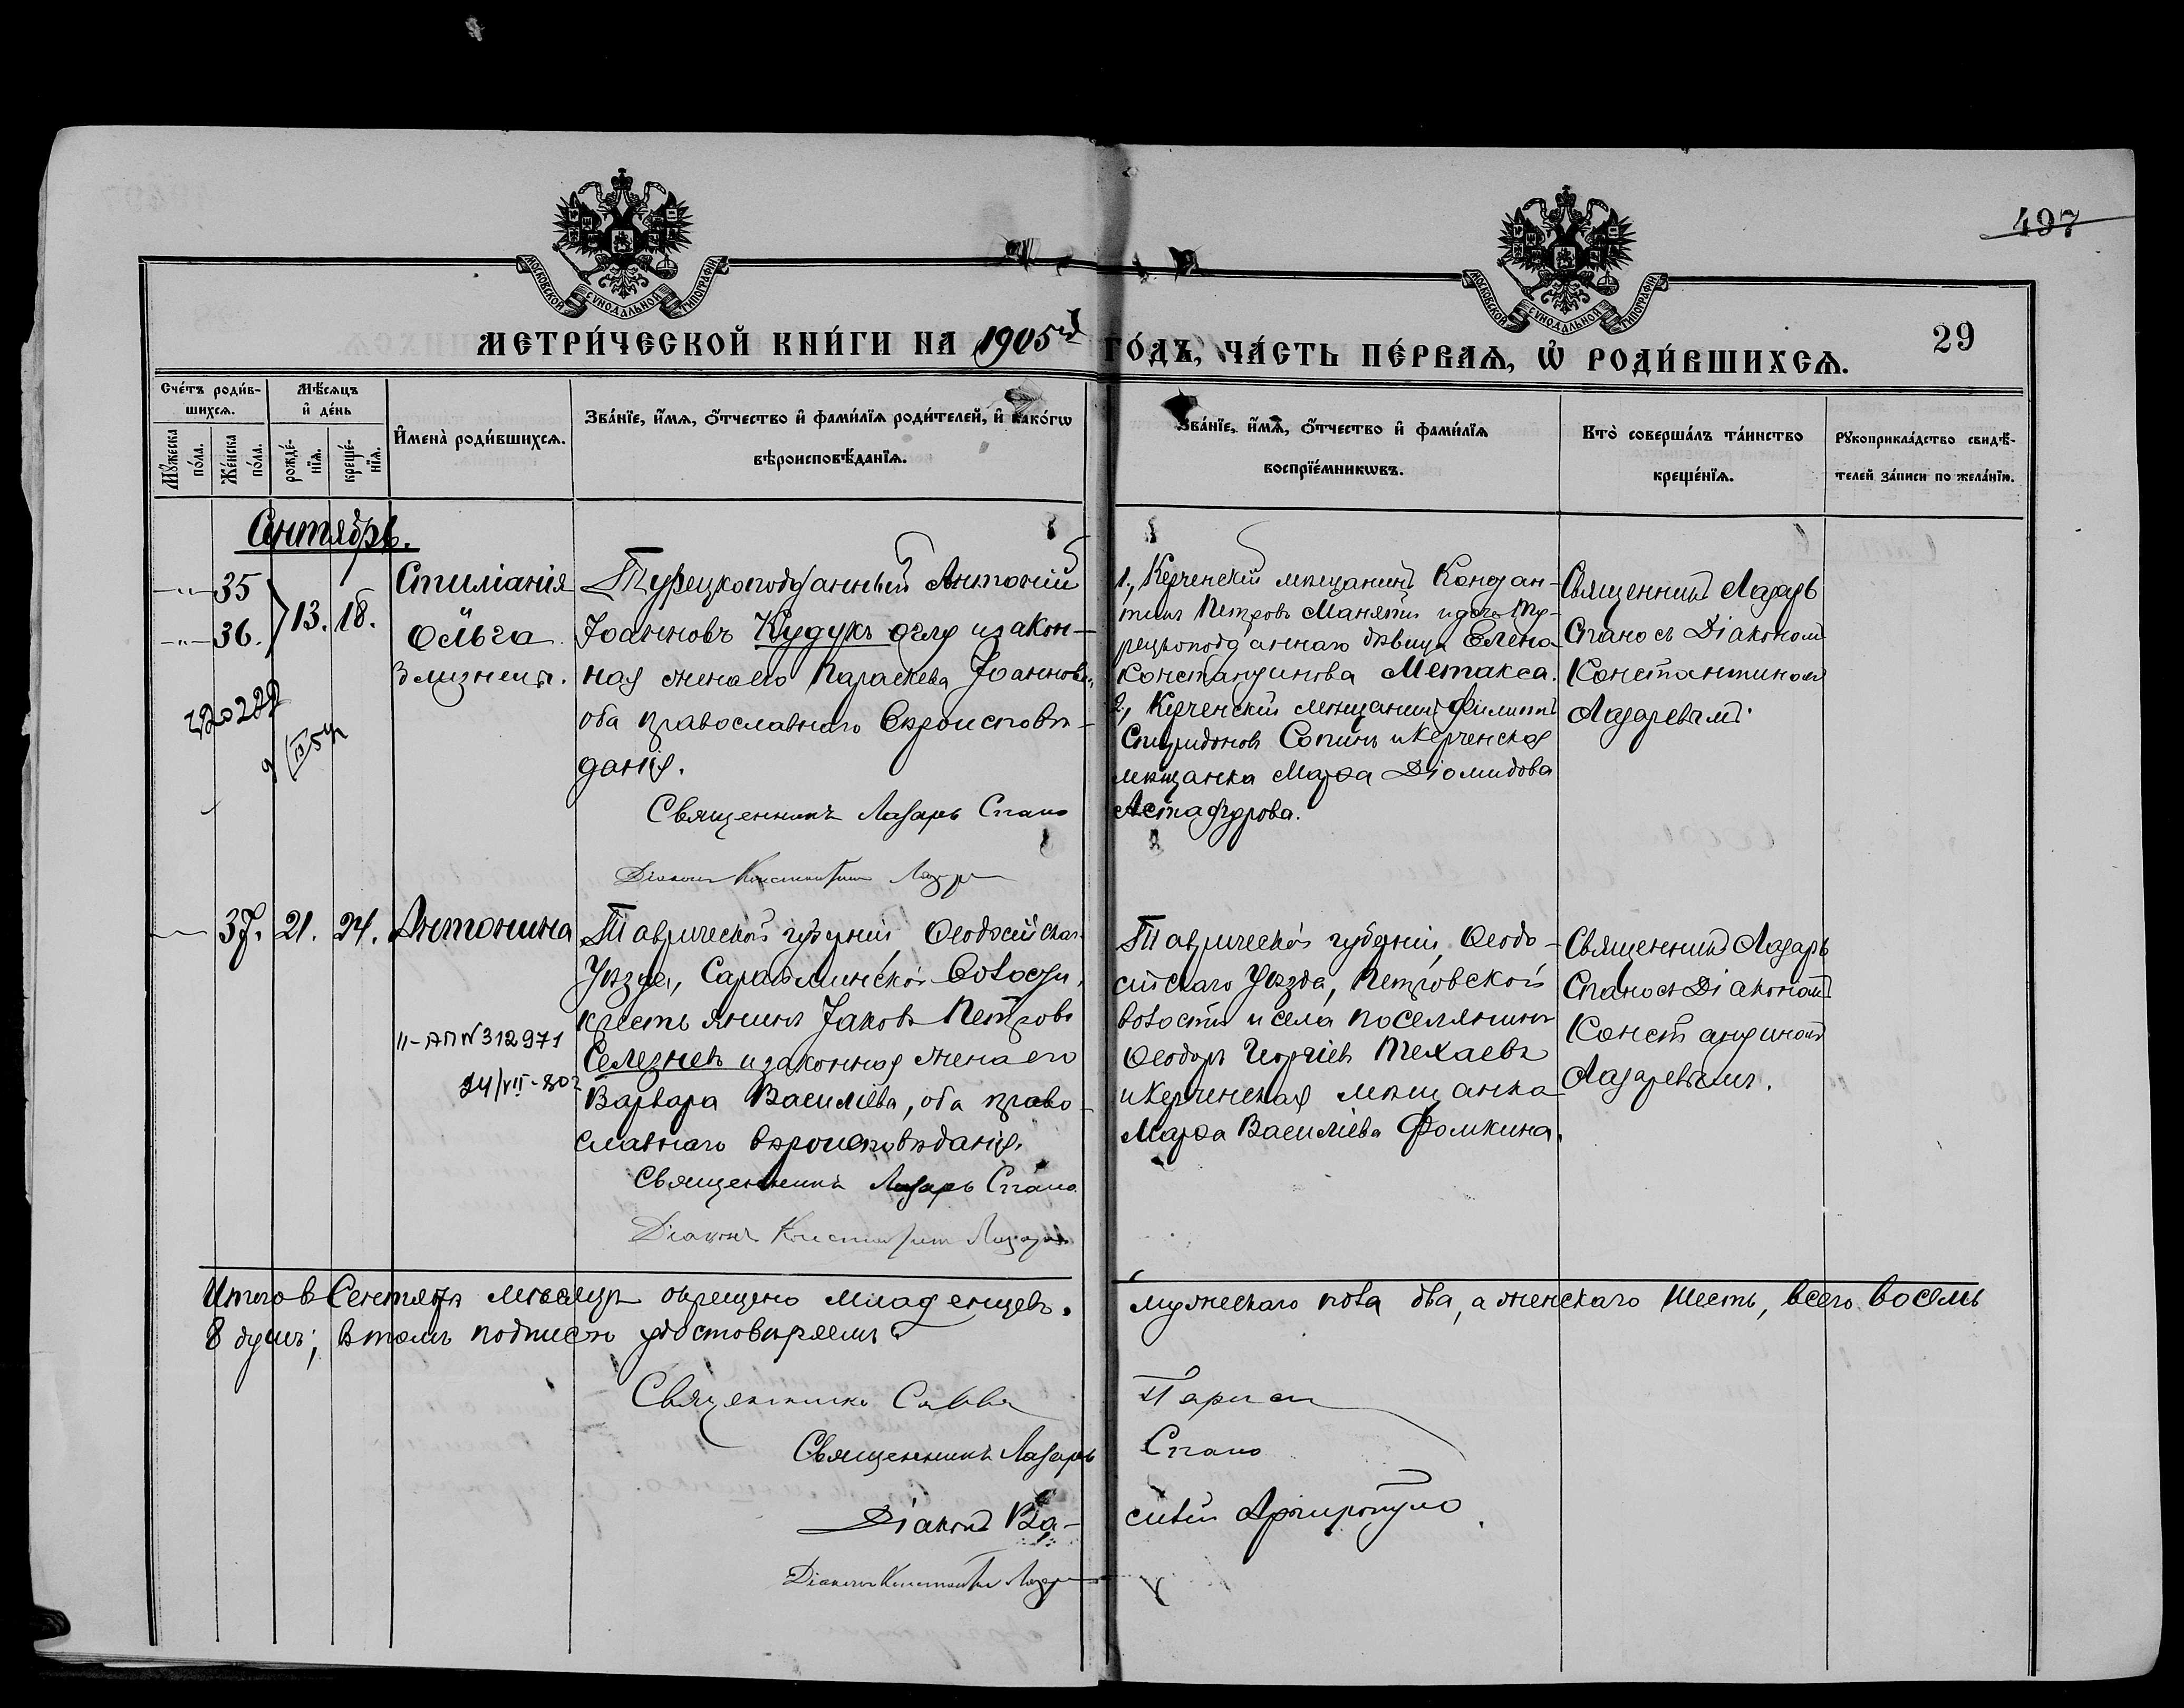 497
МОСКОВСКОЙ СѴНОДАЛЬНОЙ ТИПОГРАФІИ
МОСКОВСКОЙ СѴНОДАЛЬНОЙ ТИПОГРАФІИ
МЕТРИ́ЧЕСКОЙ КНИ́ГИ НА 1905й ГО́ДЪ, ЧА́СТЬ ПЕ́РВАѦ, Ѡ РОДИ́ВШИХСѦ.
29
Сче́тъ роди́в-
шихсѧ.
Мꙋ́жеска
по́ла.
Же́нска
по́ла.
Мѣ́сѧцъ
и҆ де́нь
рожде́-
нїѧ.
креще́-
нїѧ.
И҆мена̀ роди́вшихсѧ.
Зва́нїе, и҆́мѧ, ѻ҆́тчество и҆ фами́лїѧ роди́телей, и҆ како́гѡ
вѣроисповѣ́данїѧ.
Зва́нїе, и҆́мѧ, ѻ҆́тчество и҆ фами́лїѧ
воспрїе́мникѡвъ.
Кто̀ соверша́лъ та́инство
креще́нїѧ.
Рꙋкоприкла́дство свидѣ́-
телей за́писи по жела́нїю.
Сентябрь.
35
36.
13.
18.
Стиліанія
Ольга
Близнецы.
Турецкоподданный Антоній
Іоанновъ Кудукъ оглу и закон-
ная жена его Параскева Іоаннова,
оба православнаго вѣроисповѣ-
данія.
Священникъ Лазарь Спано
Діаконъ Константинъ Лазаревъ
1, Керченскій мѣщанинъ Констан-
тинъ Петровъ Манятъ и дочь Ту-
рецкоподданнаго дѣвица Елена
Константинова Метакса.
2, Керченскій мѣщанинъ Филиппъ
Спиридоновъ Сопинъ и Керченская
мѣщанка Марѳа Діомидова
Астафурова.
Священникъ Лазарь
Спано съ Діакономъ
Константиномъ
Лазаревымъ.
37.
21.
24.
Антонина
II-АП N 312971
24/VII-80г
Таврической губерніи, Ѳеодосійскаго
Уѣзда, Сарайминской волости,
крестьянинъ Іаковъ Петровъ
Селезневъ и законная жена его
Варвара Василіева, оба право-
славнаго вѣроисповѣданія.
Священникъ Лазарь Спано
Діаконъ Константинъ Лазаревъ
Таврической губерніи, Ѳеодо-
сійскаго Уѣзда, Петровской
волости и села поселянинъ
Ѳеодоръ Георгіевъ Техаевъ
и Керченская мѣщанка
Марѳа Василіева Фомкина.
Священникъ Лазарь
Спано съ Діакономъ
Константиномъ
Лазаревымъ.
Итого въ Сентябрѣ мѣсяцѣ окрещено младенцевъ: мужескаго пола два, а женскаго шесть, всего восемь
8 душъ; въ томъ подписью удостовѣряемъ:
Священникъ Савва
Священникъ Лазарь Спано
Діаконъ Ва- силій Аргиропуло.
Діаконъ Константинъ Лазаревъ